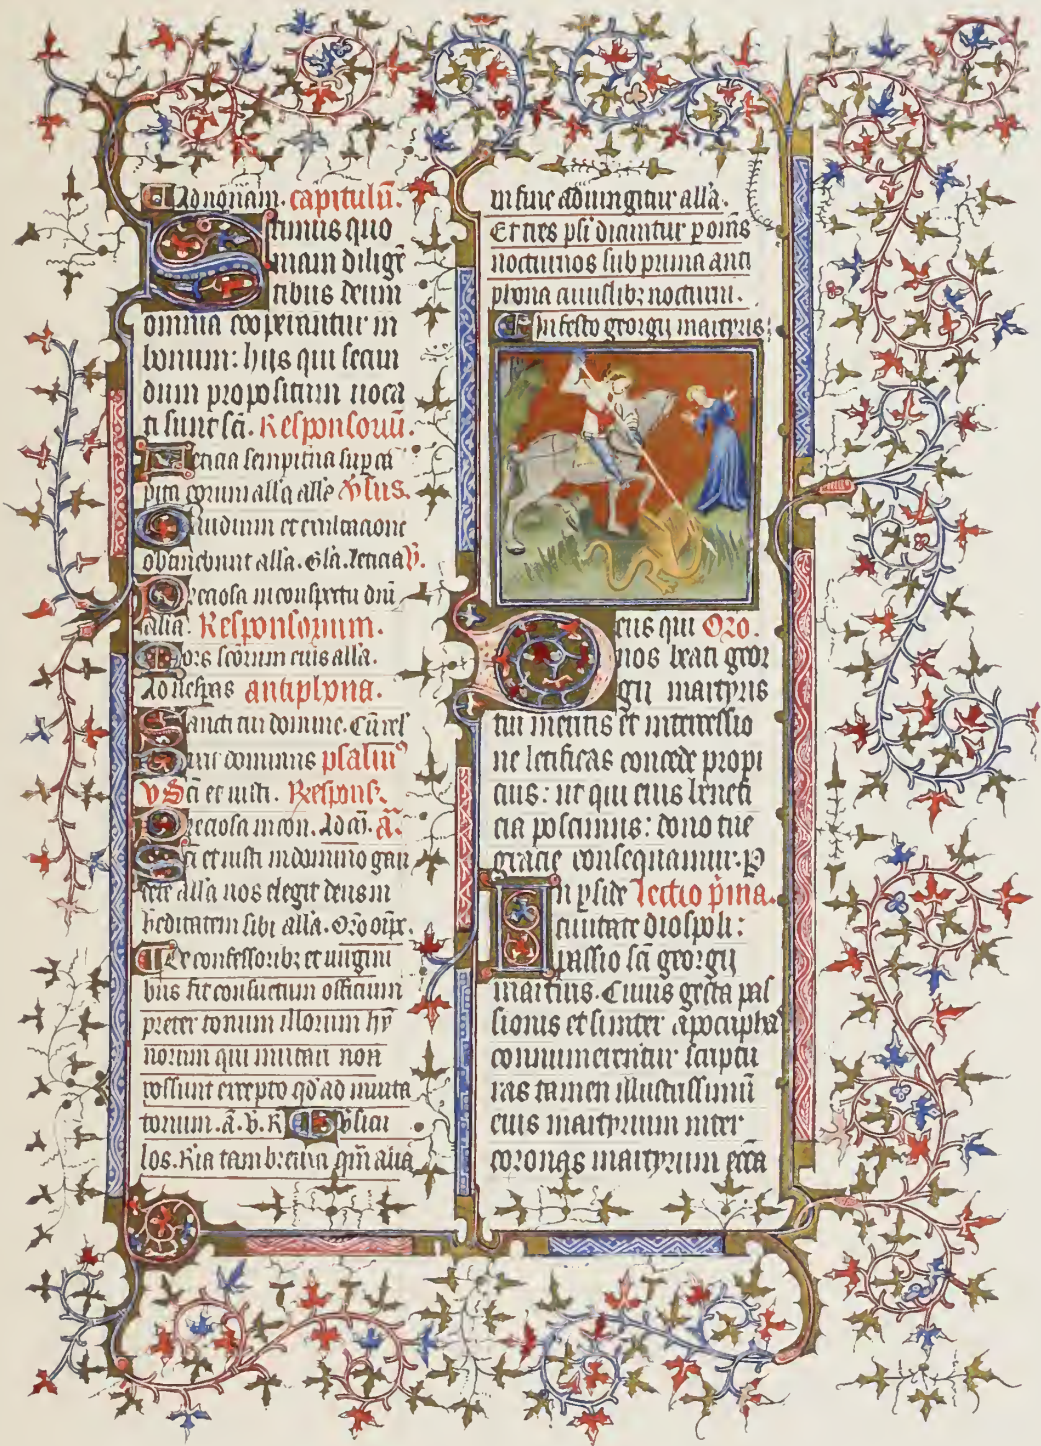 Ad nonam. capitulū.
Scimus quo
niam diligē
tibus deum
omnia cooperantur in
bonum: hijs qui secun
dum propositum uoca
ti sunt sci. Responsoriū.
Leticia sempitna sup ca
pita eorum alla alle v̄sus.
Gaudium et exultacione
obtinebunt alla. Gla. leticia v̄.
Preciosa in conspectu dni
alla. Responsorium.
Mors scorum eius alla.
Ad uesp̄as antiphona.
Sancti tui domine. Cū rel
dominus psalm⁹
v̄ Sci et iusti. Respons.
Preciosa in con. Ad cā. ā.
Sci et iusti in domino gau
dete alla uos elegit deus in
heditatem sibi alla. Oro
De confessoribz et uirgini
bus fit consuetum officium
preter tonum illorum hy
norum qui mutari non
possunt excepto qd ad inuita
torium. ā. v̄. R
los. Ria tam breuia qm alia
in fine adiungitur alla.
Et tres psi dicuntur p oms
nocturnos sub prima anti
phona cuiuslibz nocturni.
In festo georgij martyris:
Deus qui Oro.
nos beati geor
gij martyris
tui meritis et intercessio
ne letificas concede propi
cius: ut qui eius benefi
cia poscimus: dono tue
gracie consequamur. P
In pside lectio p̄ma.
ciuitate diospoli:
passio sci georgij
martiris. Cuius gesta pas
sionis etsi inter apocripha
connumerentur scriptu
ras tamen illustrissimū
eius martyrium inter
coronas martyrum ecca